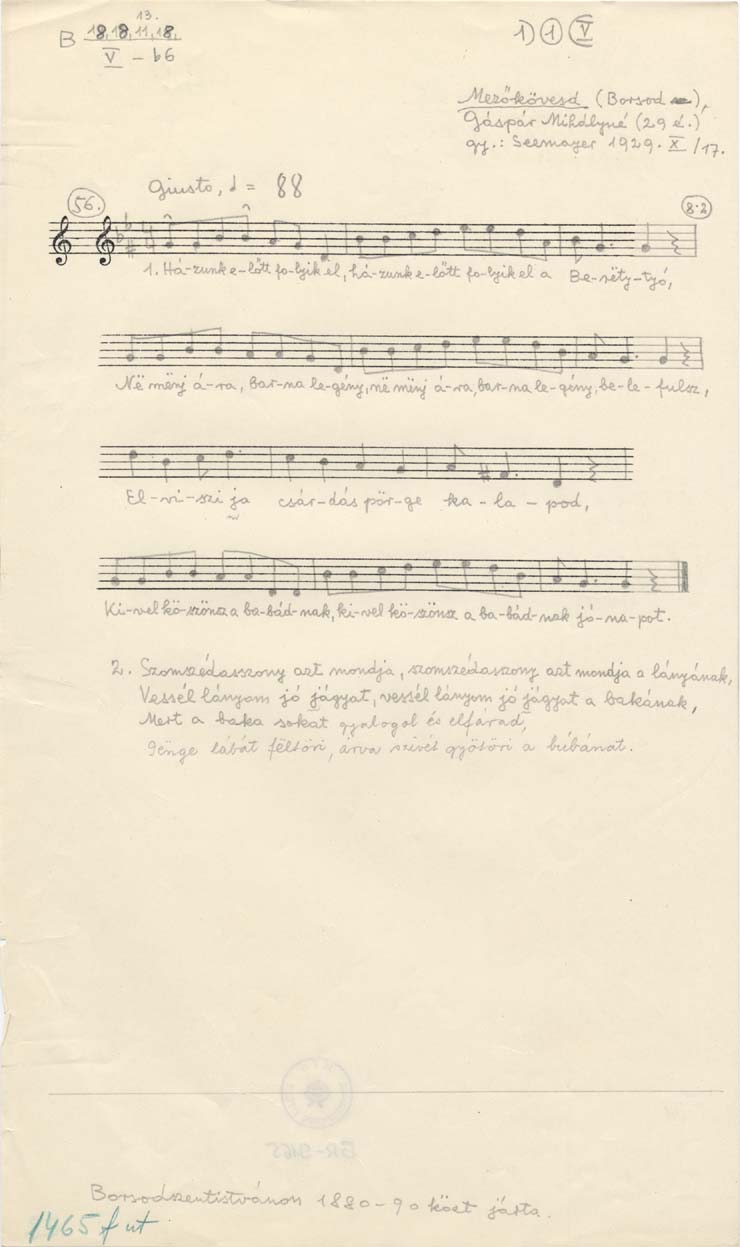 13.
B 18, 18, 11, 18,
V – b6
1) 1 V
Mezőkövesd (Borsod),
Gáspár Mihályné (29 é.)
gy.: Seemayer 1929. X /17.
Giusto, = 88
56.
8.2
1. Há-zunk e-lőtt fo-lyik el, há-zunk e-lőtt fo-lyik el a Be-sëty-tyó,
Në mënj á-ra, bar-na le-gény, në mënj á-ra, bar-na le-gény, be-le-fulsz,
El-vi-szi ja csár-dás pör-ge ka-la-pod,
Ki-vel kö-szönsz a ba-bád-nak, ki-vel kö-szönsz a ba-bád-nak jó-na-pot.
2. Szomszédasszony azt mondja, szomszédaszony azt mondja a lányának,
Vessél lányom jó jágyat, vessél lányom jó jágyat a bakának,
Mert a baka sokat gyalogol és elfárad,
Gënge lábát föltöri, árva szivét gyötöri a búbánat.
BR-9465
Borsodszentistvánon 1880-90 közt járta.
1465 f ut